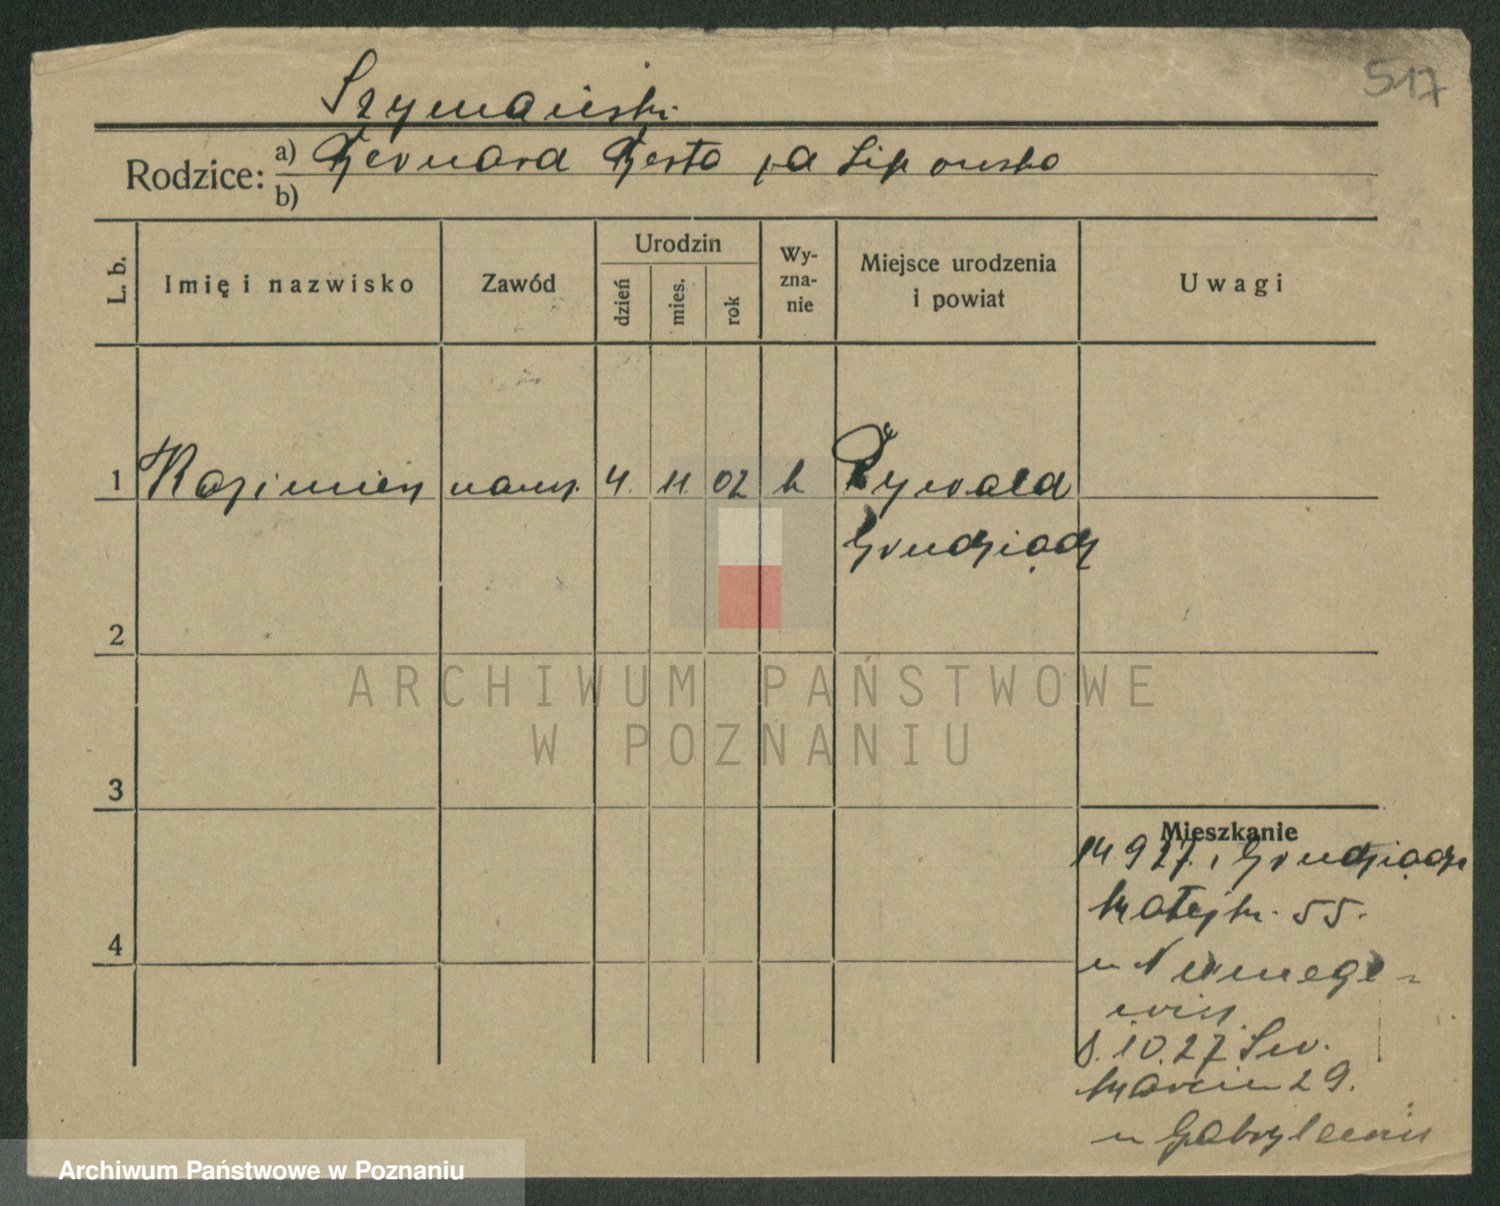 517
Szymański
Rodzice: a) Bernard Berta z d Lipowska
b)
L. b.
Imię i nazwisko
Zawód
Urodzin
dzień
mies.
rok
Wy-
zna-
nie
Miejsce urodzenia
i powiat
Uwagi
1 Kazimierz naucz. 4. 11. 02 k Rywałd
Grudziądz
2
3
4
Mieszkanie
14 9 27. Grudziądz
Matejki. 55.
u
8.10.27 Św.
Marcin 29.
u
ARCHIWUM PAŃSTWOWE
W POZNANIU
Archiwum Państwowe w Poznaniu